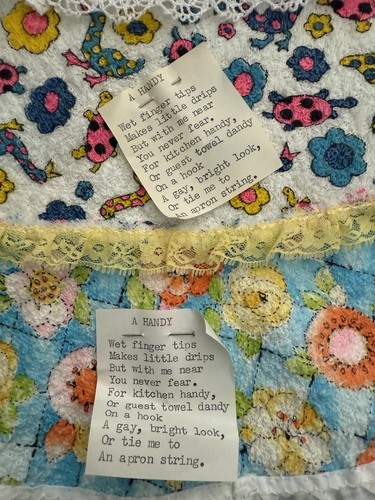 A HANDY
Wet finger tips
Makes little drips
But with me near
You never fear.
For kitchen handy,
Or guest towel dandy
On a hook
A gay, bright look,
Or tie me to
An apron string.
A HANDY
Wet finger tips
Makes little drips
But with me near
You never fear.
For kitchen handy,
Or guest towel dandy
On a hook
A gay, bright look,
Or tie me to
An apron string.